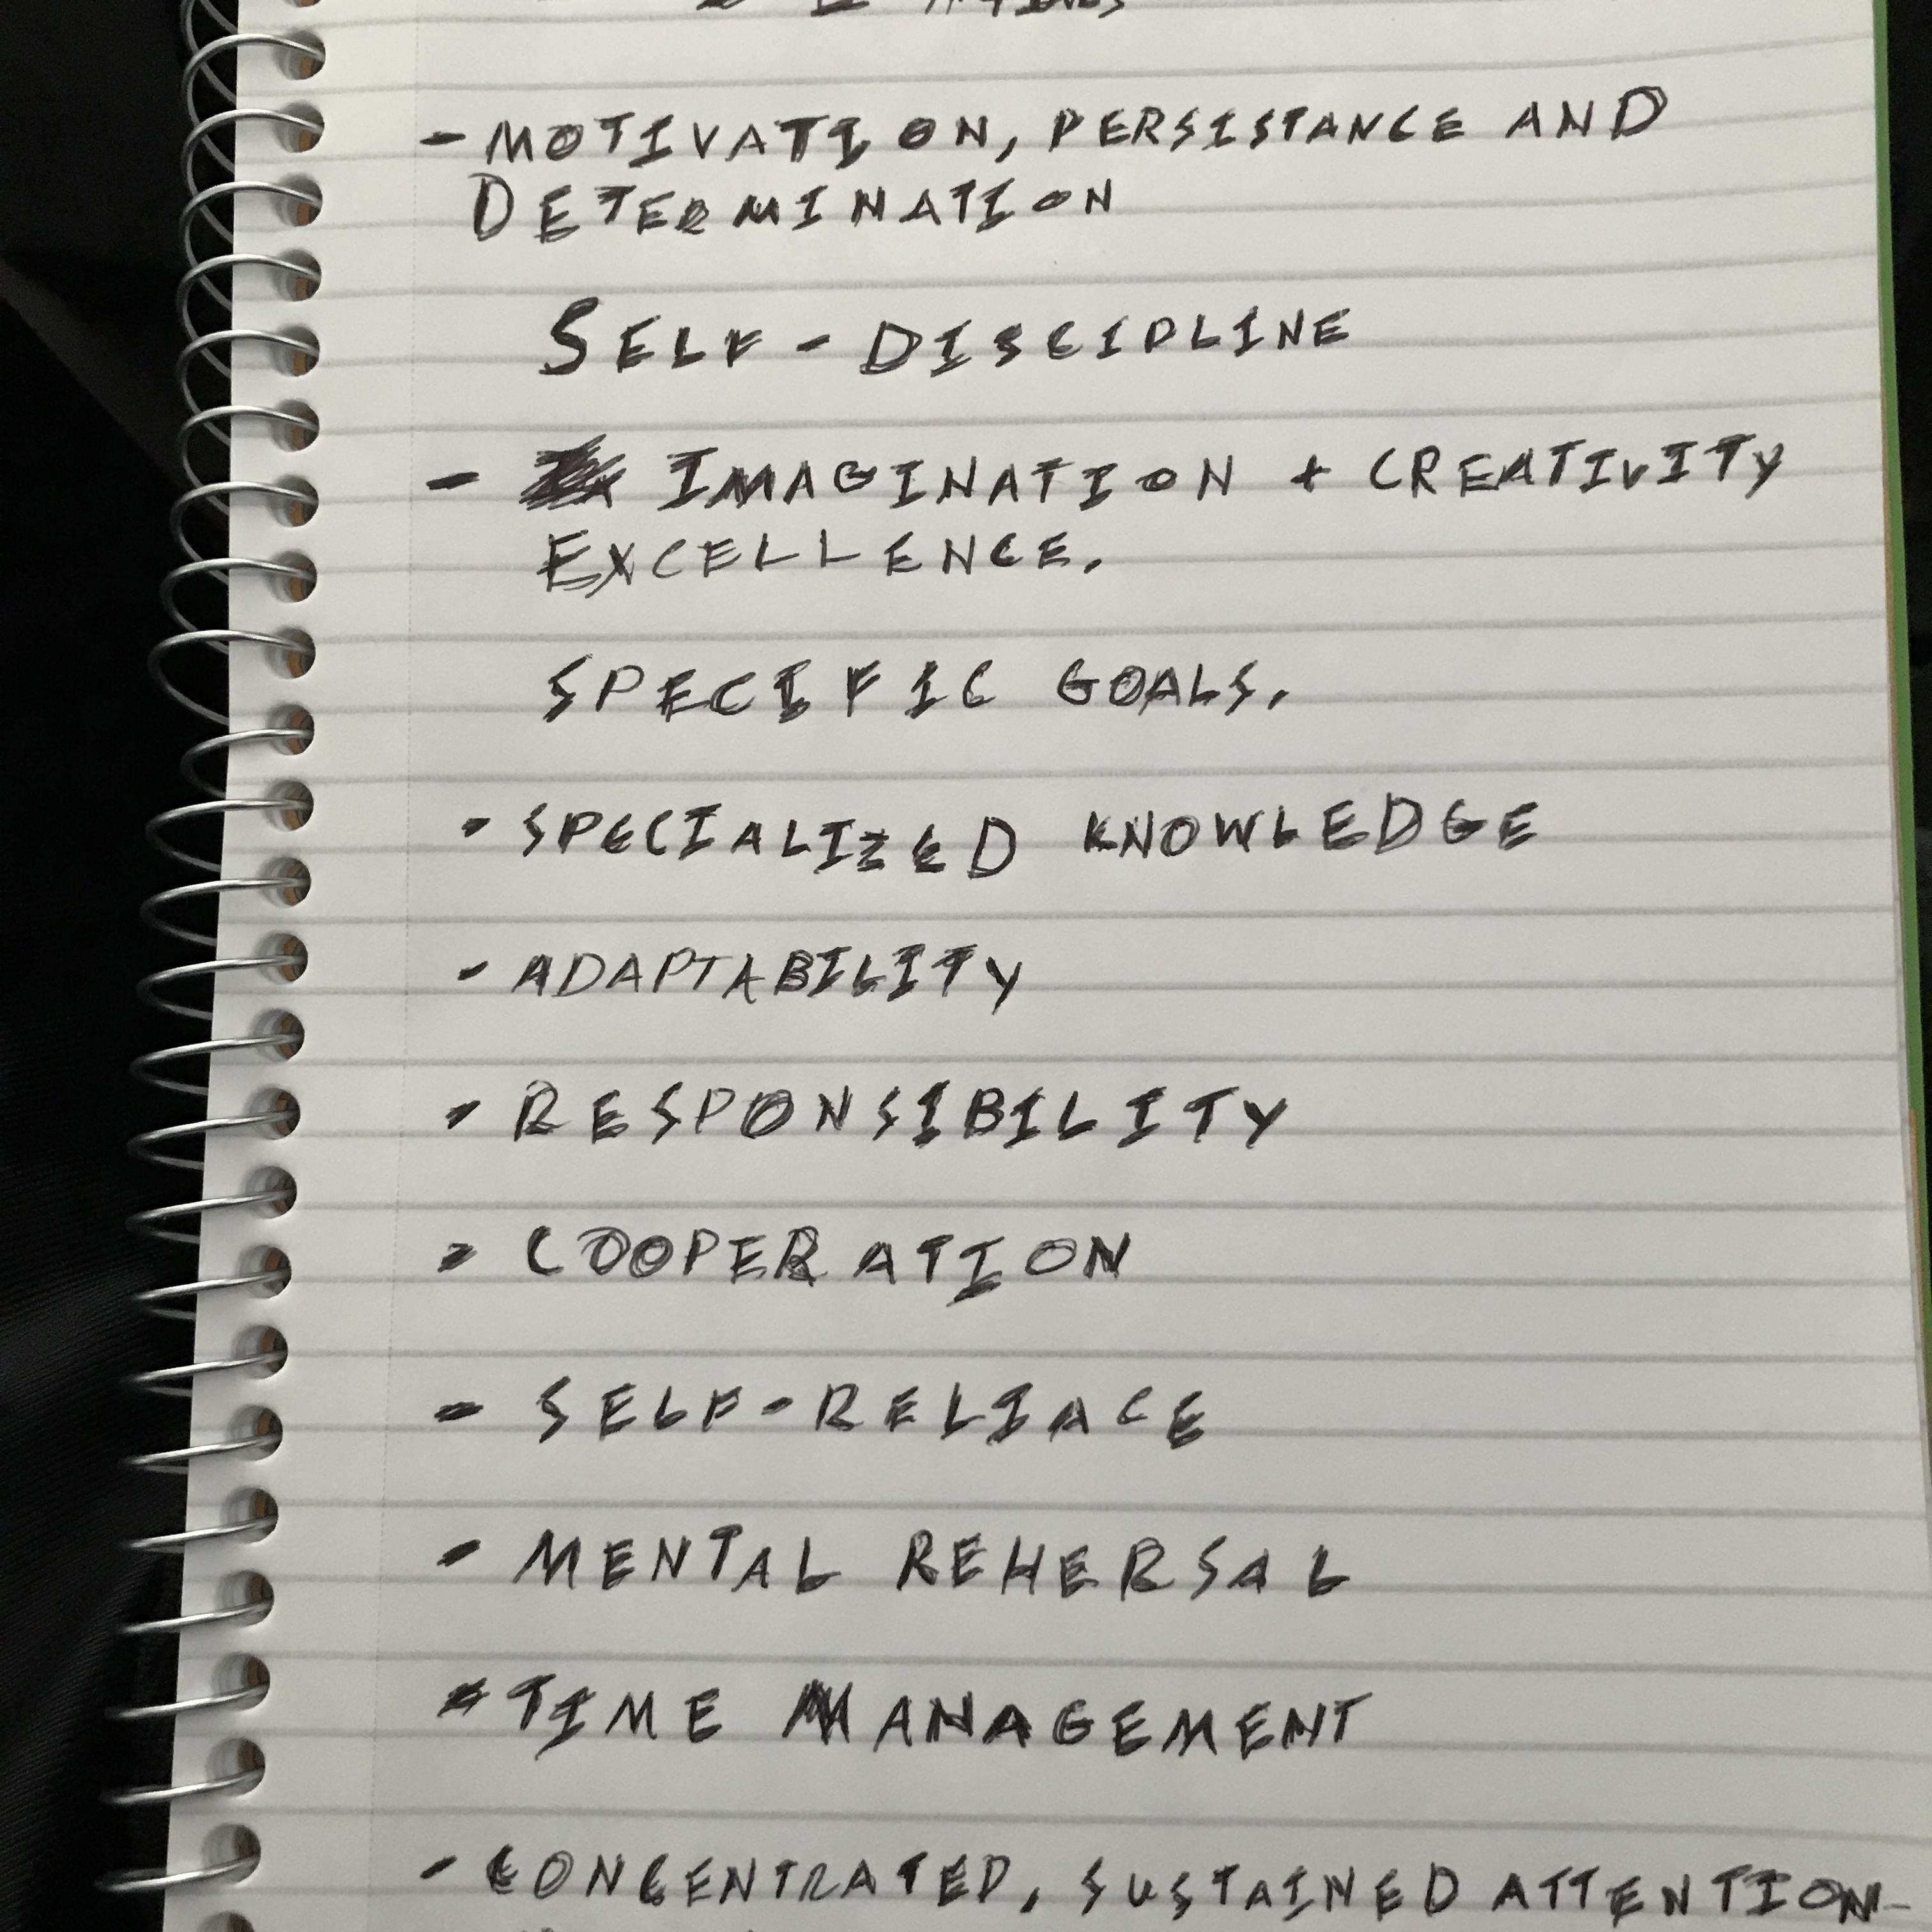 - MOTIVATION, PERSISTANCE AND
DETERMINATION
SELF-DISCIPLINE
- IMAGINATION + CREATIVITY
EXCELLENCE.
SPECIFIC GOALS.
- SPECIALIZED KNOWLEDGE
- ADAPTABILITY
- RESPONSIBILITY
- COOPERATION
- SELF-RELIACE
- MENTAL REHERSAL
- TIME MANAGEMENT
- CONCENTRATED, SUSTAINED ATTENTION